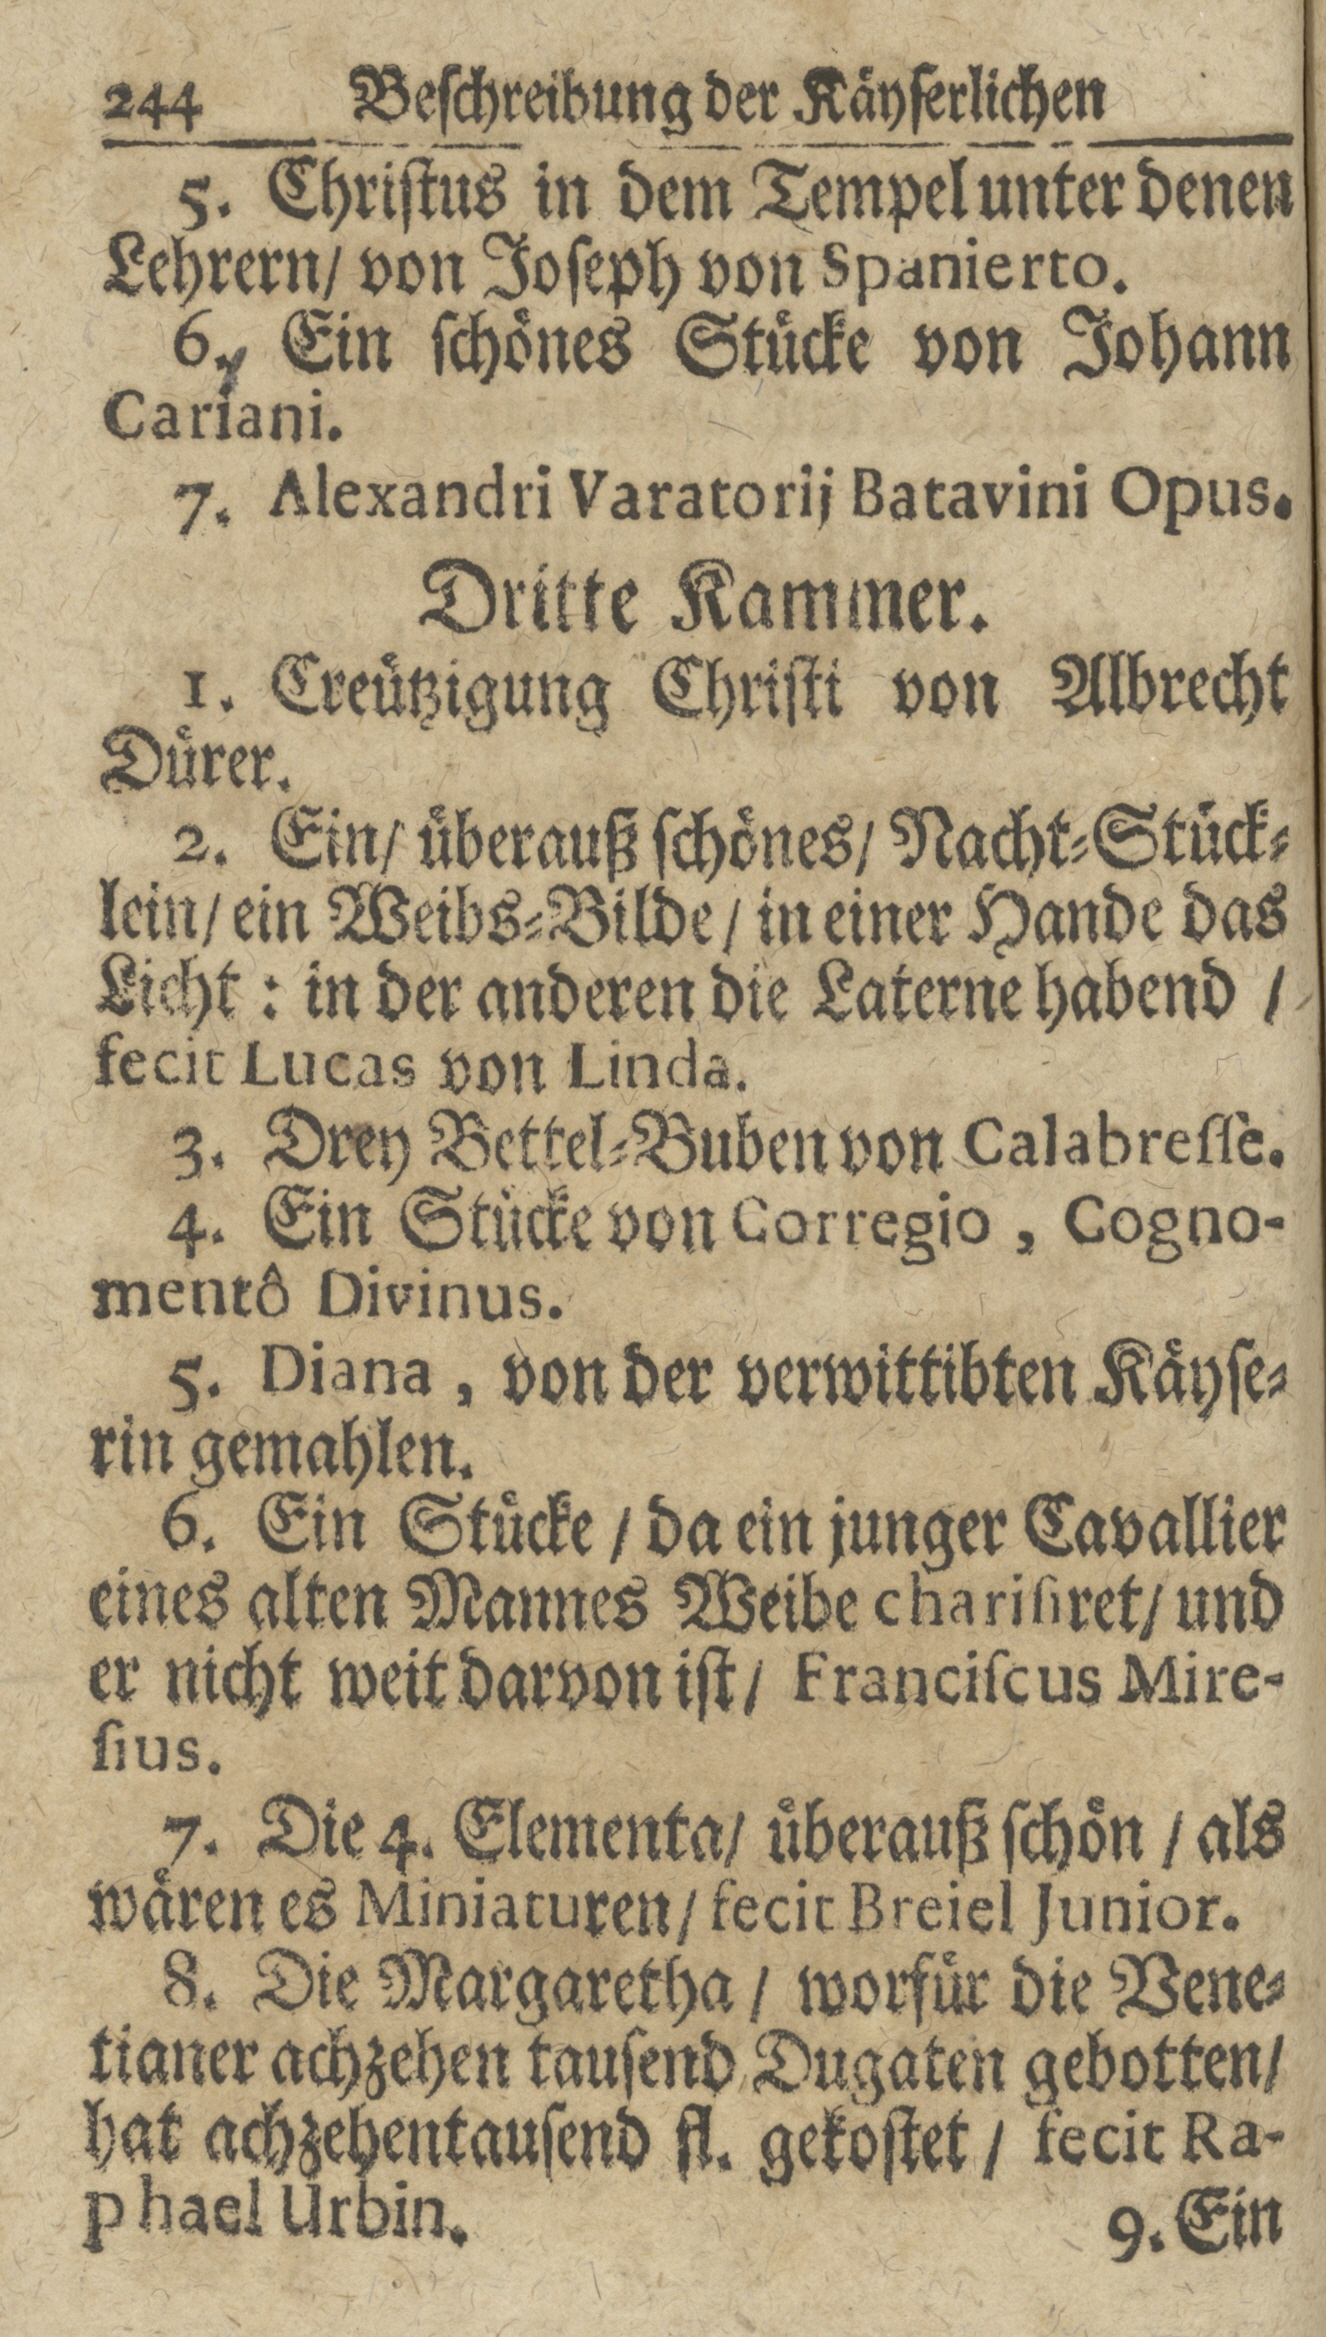 244 Beſchreibung der Käyſerlichen
5. Chriſtus in dem Tempel unter denen
Lehrern/ von Joſeph von Spanierto.
6. Ein ſchönes Stücke von Johann
Cariani.
7. Alexandri Varatorij Batavini Opus.
Dritte Kammer.
1. Creützigung Chriſti von Albrecht
Dürer.
2. Ein/ überauß ſchönes/ Nacht-Stück-
lein/ ein Weibs-Bilde/ in einer Hande das
Licht: in der anderen die Laterne habend /
fecit Lucas von Linda.
3. Drey Bettel-Buben von Calabreſſe.
4. Ein Stücke von Corregio, Cogno-
mentô Divinus.
5. Diana, von der verwittibten Käyſe-
rin gemahlen.
6. Ein Stücke / da ein junger Cavallier
eines alten Mannes Weibe chariſiret/ und
er nicht weit darvon iſt/ Franciſcus Mire-
ſius.
7. Die 4. Elementa/ überauß ſchön / als
wären es Miniaturen/ fecit Breiel Junior.
8. Die Margaretha / worfür die Vene-
tianer achzehen tauſend Dugaten gebotten/
hat achzehentauſend fl. gekoſtet / fecit Ra-
phael Urbin.
9. Ein